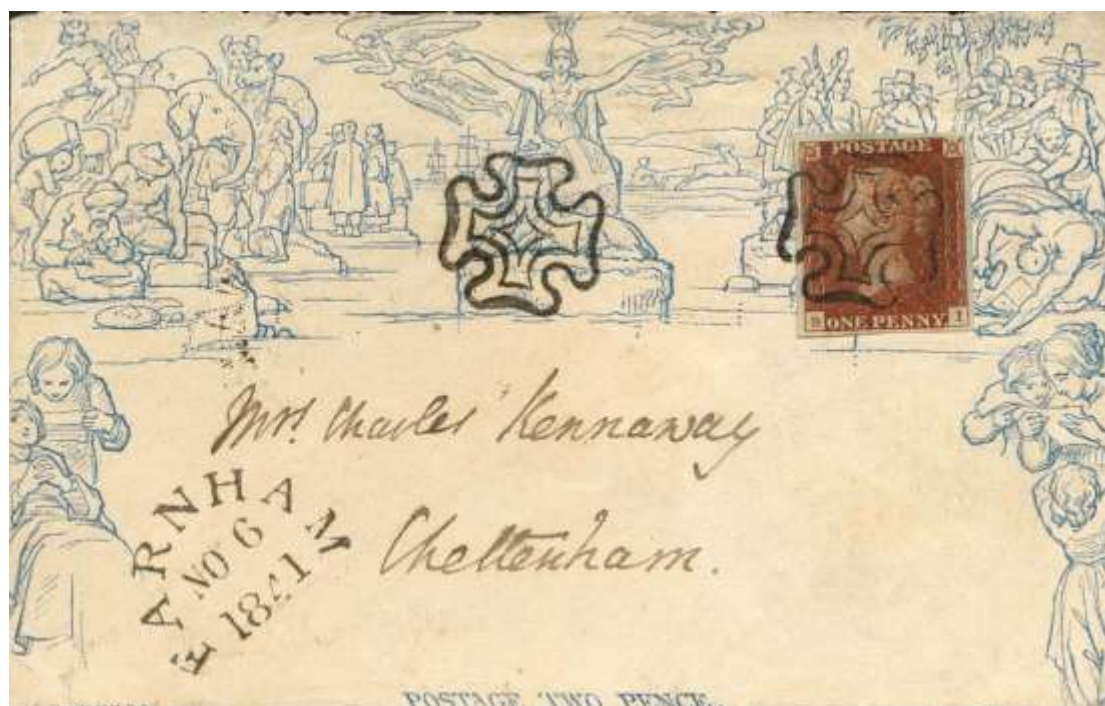 POSTAGE
ONE PENNY
Mrs. Charles Kennaway
Cheltenham.
FARNHAM
NO 6
1841
POSTAGE TWO PENCE.